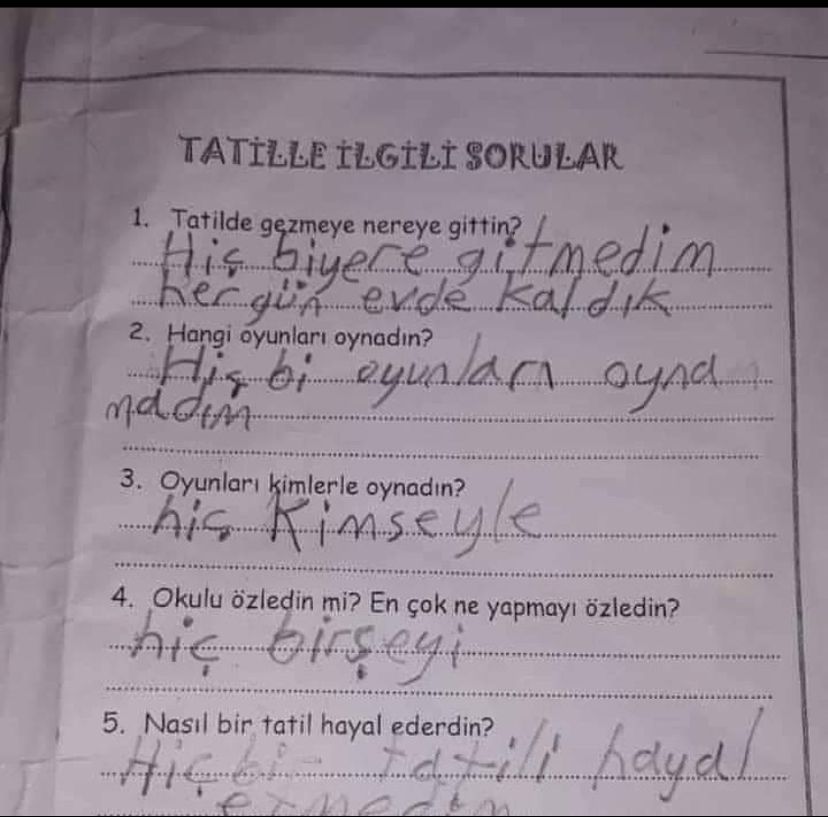 TATİLLE İLGİLİ SORULAR
1. Tatilde gezmeye nereye gittin?
Hiç biyere gitmedim
her gün evde kaldık
2. Hangi oyunları oynadın?
Hiç bi oyunları oyna
madım
3. Oyunları kimlerle oynadın?
hiç Kimseyle
4. Okulu özledin mi? En çok ne yapmayı özledin?
hiç birşeyi
5. Nasıl bir tatil hayal ederdin?
Hiç bi tatili hayal
etmedim